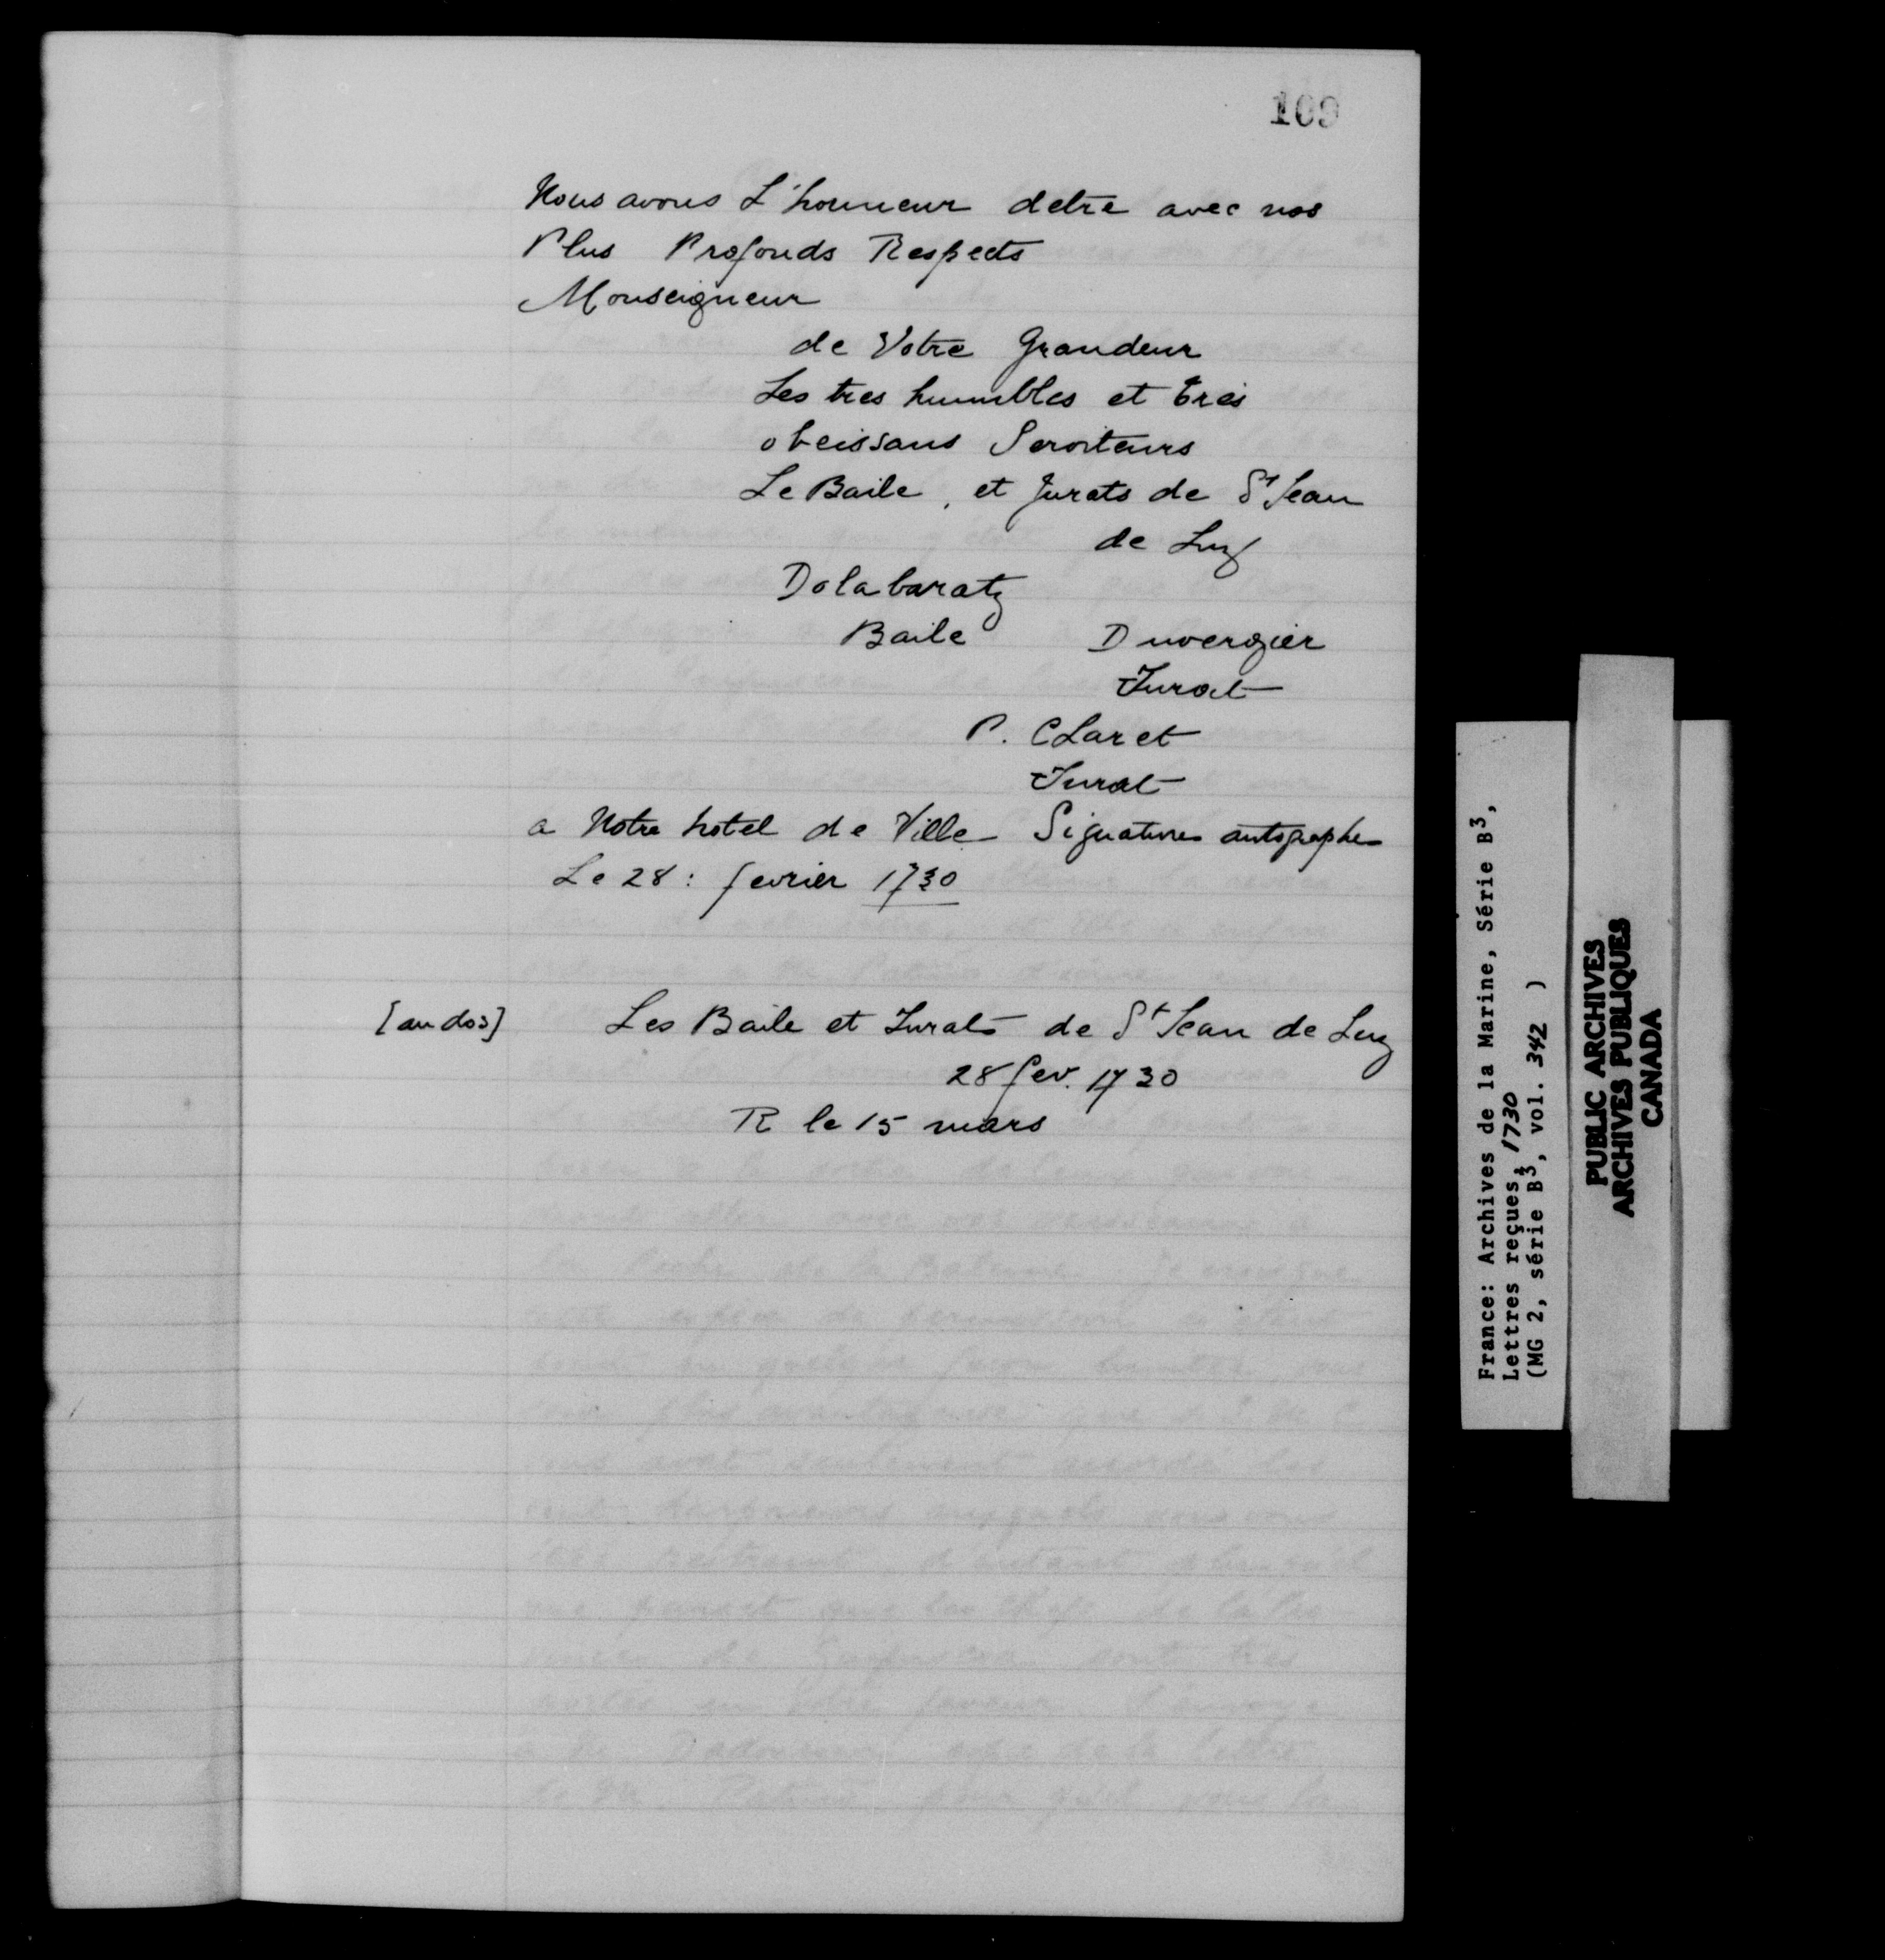 109
Nous avons L'honneur detre avec nos
Plus Profonds Respects
Monseigneur
de Votre Grandeur
Les tres humbles et tres
obeissans Serviteurs
Le Baile, et Jurats de St Jean
de Luz
Dolabaratz
Baile
Duvergier
Jurat
P. CLaret
Jurat
a Notre hotel de Ville Signatures autographes
Le 28: fevrier 1730
[au dos] Les Baile et Jurats de St Jean de Luz
28 fev. 1730
R le 15 mars
France: Archives de la Marine, Série B3,
Lettres reçues, 1730
(MG 2, série B3, vol. 342 )
PUBLIC ARCHIVES
ARCHIVES PUBLIQUES
CANADA